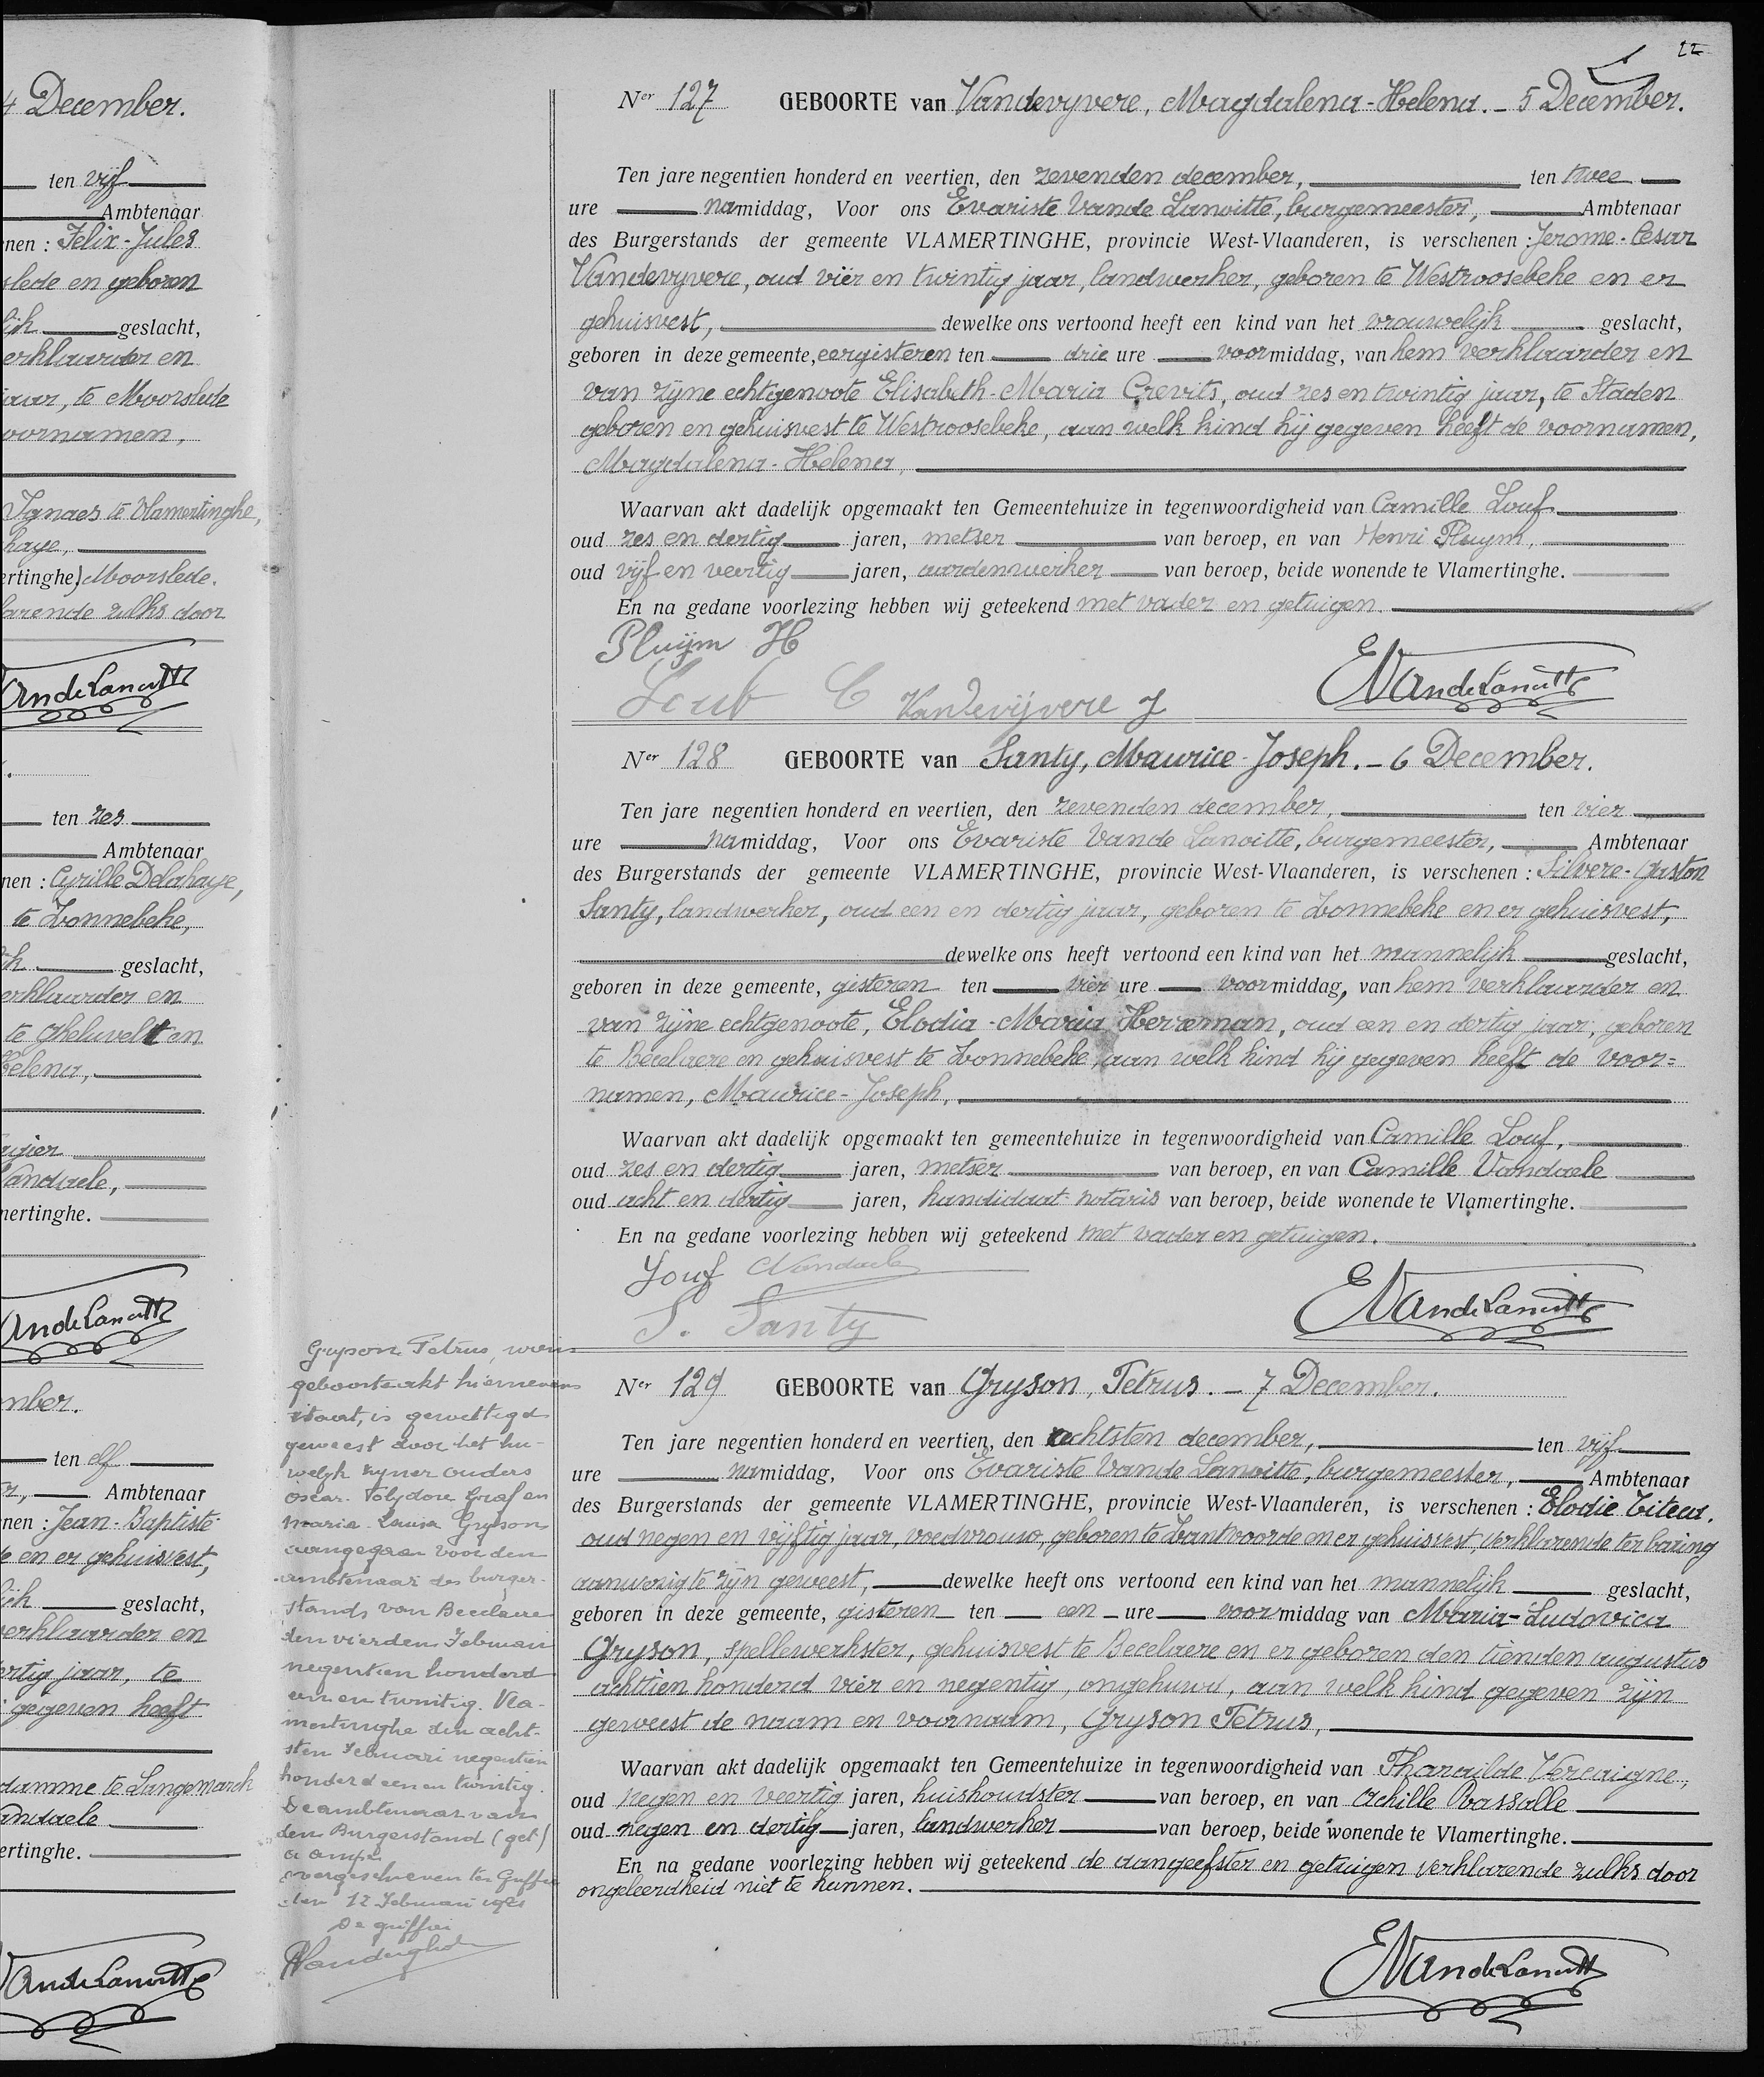 4 December.
ten vijf
Ambtenaar
nen : Felix-Jules
slede en geboren
lijk geslacht,
erklaarder en
jaar, te Moorslede
oornamen,
Ignaes te Vlamertinghe,
haye,
ertinghe) Moorslede.
larende zulks door
VandeLanoitte
ten zes
Ambtenaar
nen : Cyrille Delahaye,
te Zonnebeke,
ijk geslacht,
erklaarder en
te Gheluvelt en
Helena,
Vandaele,
mertinghe.
VandeLanoitte
mber.
ten elf
Ambtenaar
nen : Jean-Baptiste
e en er gehuisvest,
lijk geslacht,
verklaarder en
ertig jaar, te
gegeven heeft
damme te Langemarck
andaele
ertinghe.
VandeLanoitte
22
Ner 127 GEBOORTE van Vandevyvere, Magdalena-Helena. - 5 December.
Ten jare negentien honderd en veertien, den zevenden december, ten twee
ure namiddag, Voor ons Evariste Vande Lanoitte, burgemeester, Ambtenaar
des Burgerstands der gemeente VLAMERTINGHE, provincie West-Vlaanderen, is verschenen : Jerome-Cesar
Vandevyvere, oud vier en twintig jaar, landwerker, geboren te Westroosebeke en er
gehuisvest, dewelke ons vertoond heeft een kind van het vrouwelijk geslacht,
geboren in deze gemeente, eergisteren ten drie ure voormiddag, van hem verklaarder en
van zijne echtgenoote Elisabeth-Maria Crevits, oud zes en twintig jaar, te Staden
geboren en gehuisvest te Westroosebeke, aan welk kind hij gegeven heeft de voornamen,
Magdalena-Helena,
Waarvan akt dadelijk opgemaakt ten Gemeentehuize in tegenwoordigheid van Camille Louf
oud zes en dertig jaren, metser van beroep, en van Henri Pluym,
oud vijf en veertig jaren, aardenwerker van beroep, beide wonende te Vlamertinghe.
En na gedane voorlezing hebben wij geteekend met vader en getuigen.
Pluijm H
Louf C Vandevijvere J EVandeLanoitte
Ner 128 GEBOORTE van Santy, Maurice-Joseph. - 6 December.
Ten jare negentien honderd en veertien, den zevenden december, ten vier
ure namiddag, Voor ons Evariste Vande Lanoitte, burgemeester, Ambtenaar
des Burgerstands der gemeente VLAMERTINGHE, provincie West-Vlaanderen, is verschenen : Silvere-Gaston
Santy, landwerker, oud een en dertig jaar, geboren te Zonnebeke en er gehuisvest,
dewelke ons heeft vertoond een kind van het mannelijk geslacht,
geboren in deze gemeente, gisteren ten vier ure voormiddag, van hem verklaarder en
van zijne echtgenoote, Elodia-Maria Herreman, oud een en dertig jaar, geboren
te Becelaere en gehuisvest te Zonnebeke, aan welk kind hij gegeven heeft de voor=
namen, Maurice-Joseph,
Waarvan akt dadelijk opgemaakt ten gemeentehuize in tegenwoordigheid van Camille Louf,
oud zes en dertig jaren, metser van beroep, en van Camille Vandaele
oud acht en dertig jaren, kandidaat-notaris van beroep, beide wonende te Vlamertinghe.
En na gedane voorlezing hebben wij geteekend met vader en getuigen.
Louf CVandaele
S. Santy EVandeLanoitte
Gryson Petrus, wiens
geboorteakt hiernevens
staat, is gewettigd
geweest door het hu-
welijk zijner ouders
Oscar-Polydore Graf en
Maria-Louisa Gryson
aangegaan voor den
ambtenaar des burger-
stands van Becelaere
den vierden Februari
negentien honderd
een en twintig. Vla-
mertinghe den acht-
sten Februari negentien
honderd een en twintig.
De ambtenaar van
den Burgerstand (get)
overgeschreven ter Griffie
den 12 Februari 1921
De griffier
Ner 129 GEBOORTE van Gryson, Petrus. - 7 December.
Ten jare negentien honderd en veertien, den achtsten december, ten vijf
ure namiddag, Voor ons Evariste Vande Lanoitte, burgemeester, Ambtenaar
des Burgerstands der gemeente VLAMERTINGHE, provincie West-Vlaanderen, is verschenen : Elodie Titeca.
oud negen en vijftig jaar, voedvrouw, geboren te Zantvoorde en er gehuisvest, verklarende ter baring
aanwezig te zijn geweest, dewelke heeft ons vertoond een kind van het mannelijk geslacht,
geboren in deze gemeente, gisteren ten een ure voormiddag van Maria-Ludovica
Gryson, spellewerkster, gehuisvest te Becelaere en er geboren den tienden augustus
achttien honderd vier en negentig, ongehuwd, aan welk kind gegeven zijn
geweest de naam en voornaam, Gryson Petrus,
Waarvan akt dadelijk opgemaakt ten Gemeentehuize in tegenwoordigheid van Tharailde Vercaigne,
oud negen en veertig jaren, huishoudster van beroep, en van Achille Ovassalle
oud negen en dertig jaren, landwerker van beroep, beide wonende te Vlamertinghe.
En na gedane voorlezing hebben wij geteekend de aangeefster en getuigen verklarende zulks door
ongeleerdheid niet te kunnen.
EVandeLanoitte